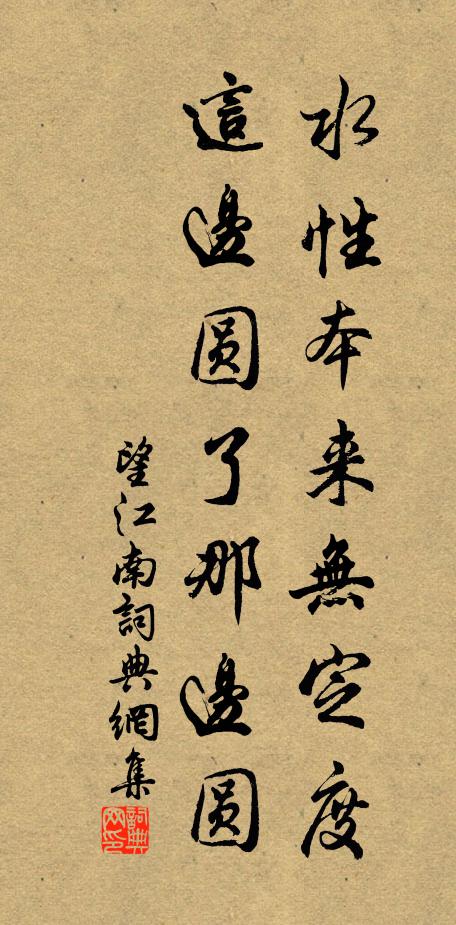 水性本来無定度
這邊圓了那邊圓
望江南詞典網集
詞典
网印